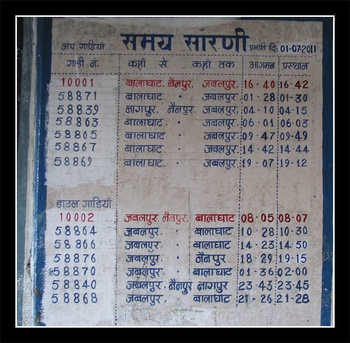 समय सारणी
अप गाड़ियाँ प्रभावी दि. 01-07-2011
गाड़ी नं. कहाँ से कहाँ तक आगमन प्रस्थान
10001 बालाघाट, नैनपुर, जबलपुर, 16-40 16-42
58871 बालाघाट, " जबलपुर, 01-28 01-30
58839 नागपुर, नैनपुर जबलपुर, 04-10 04-15
58863 बालाघाट, " जबलपुर, 06-01 06-03
58865 बालाघाट, " जबलपुर, 09-47 09-49
58867 बालाघाट, " जबलपुर, 14-42 14-44
58869 बालाघाट, " जबलपुर, 19-07 19-12
डाउन गाड़ियाँ
10002 जबलपुर, नैनपुर, बालाघाट 08-05 08-07
58864 जबलपुर, " बालाघाट 10-28 10-30
58866 जबलपुर, " बालाघाट 14-23 14-50
58876 जबलपुर, " नैनपुर 18-29 19-15
58870 जबलपुर, " बालाघाट 01-36 02-00
58840 जबलपुर, नैनपुर नागपुर 23-43 23-45
58868 जबलपुर, बालाघाट 21-26 21-28